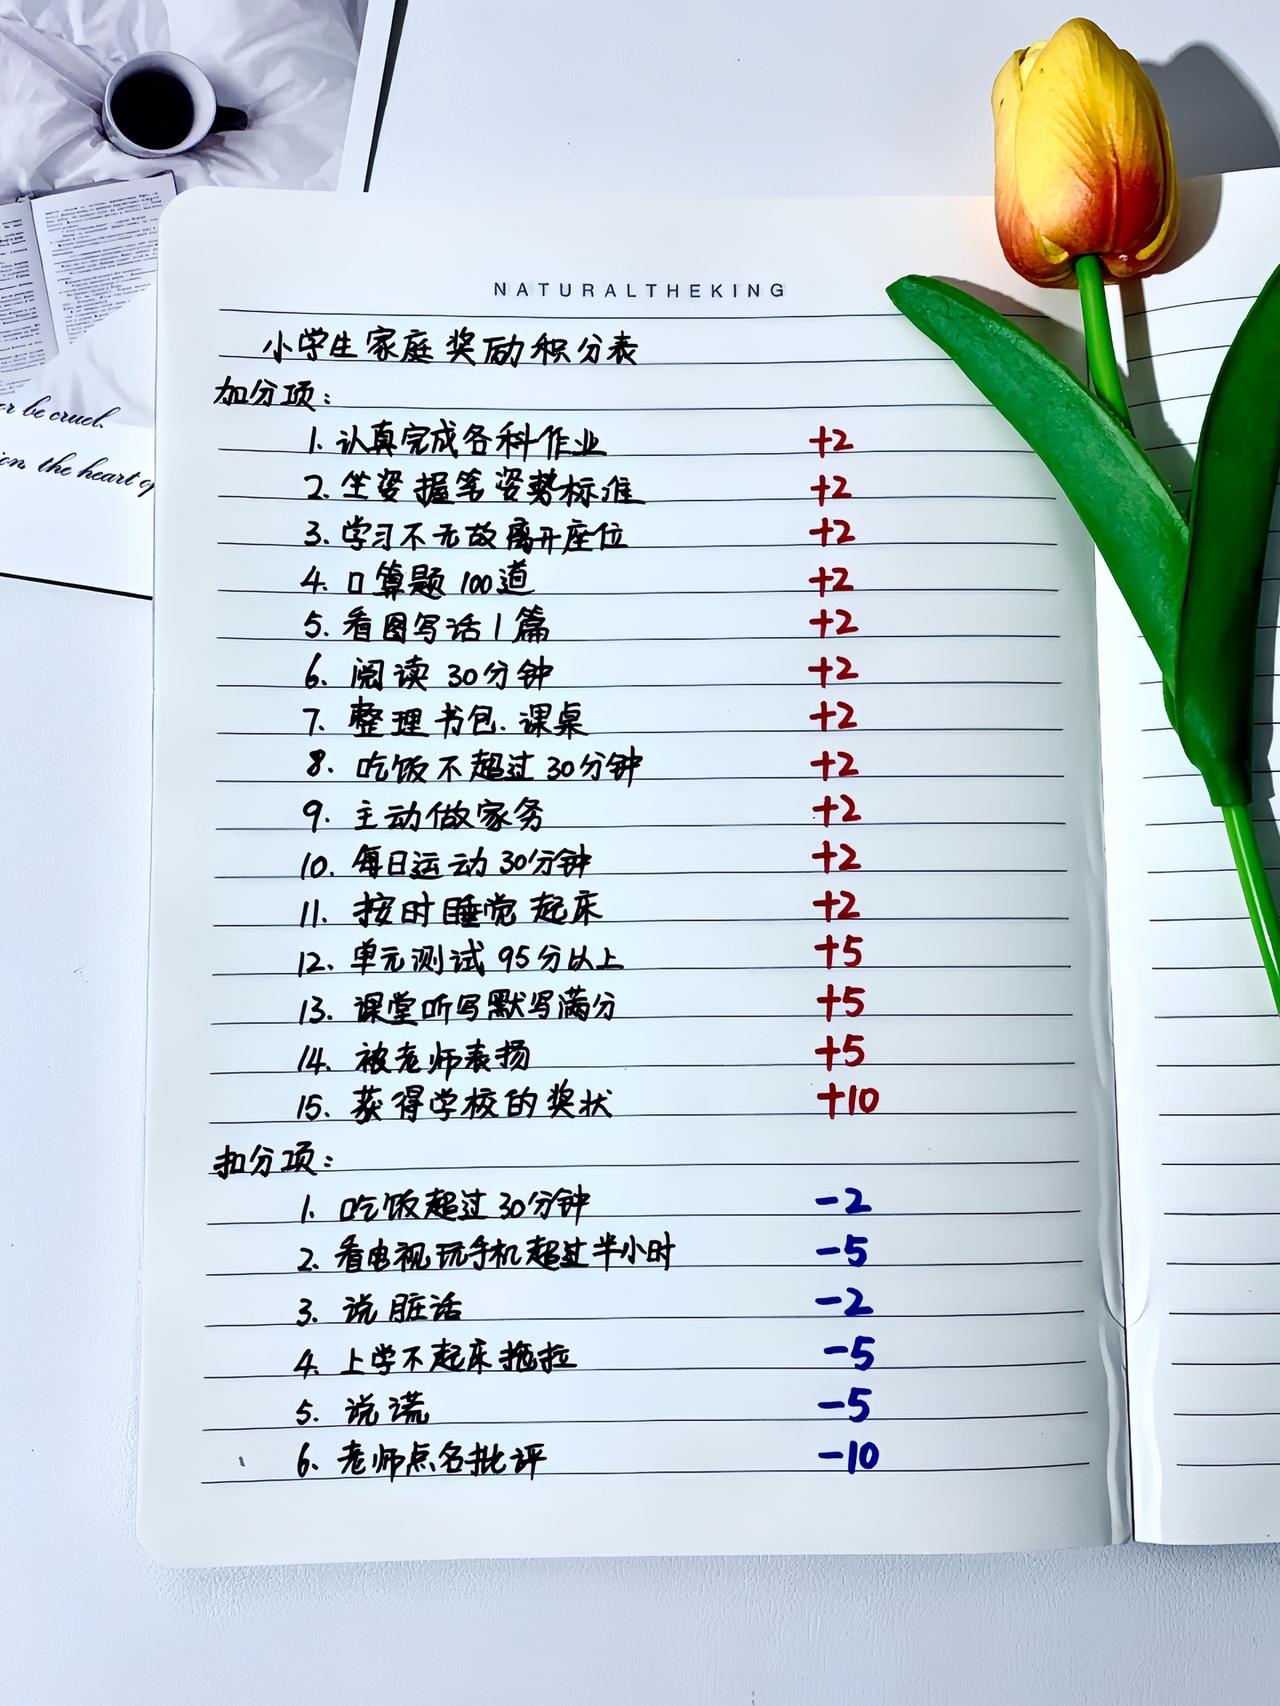 er be cruel.
ion the heart of
NATURALTHEKING
小学生家庭奖励积分表
加分项：
1. 认真完成各科作业 +2
2. 坐姿握笔姿势标准 +2
3. 学习不无故离开座位 +2
4. 口算题100道 +2
5. 看图写话1篇 +2
6. 阅读30分钟 +2
7. 整理书包.课桌 +2
8. 吃饭不超过30分钟 +2
9. 主动做家务 +2
10. 每日运动30分钟 +2
11. 按时睡觉起床 +2
12. 单元测试95分以上 +5
13. 课堂听写默写满分 +5
14. 被老师表扬 +5
15. 获得学校的奖状 +10
扣分项：
1. 吃饭超过30分钟 -2
2. 看电视玩手机超过半小时 -5
3. 说脏话 -2
4. 上学不起床拖拉 -5
5. 说谎 -5
6. 老师点名批评 -10